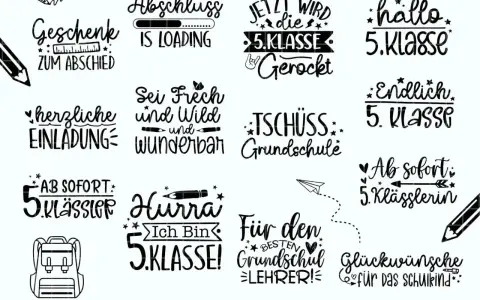 Geschenk
ZUM ABSCHIED
Abschluss
IS LOADING
JETZT WIRD
die
5.KLASSE
Gerockt
hallo
5.Klasse
herzliche
EINLADUNG
Sei Frech
und Wild
und
wunderbar
TSCHÜSS
Grundschule
Endlich
5. Klasse
AB SOFORT
5.KLÄSSLER
Hurra
Ich Bin
5.KLASSE!
Für den
BESTEN
Grundschul
LEHRER!
Ab sofort
5.Klässlerin
Glückwünsche
für das Schulkind